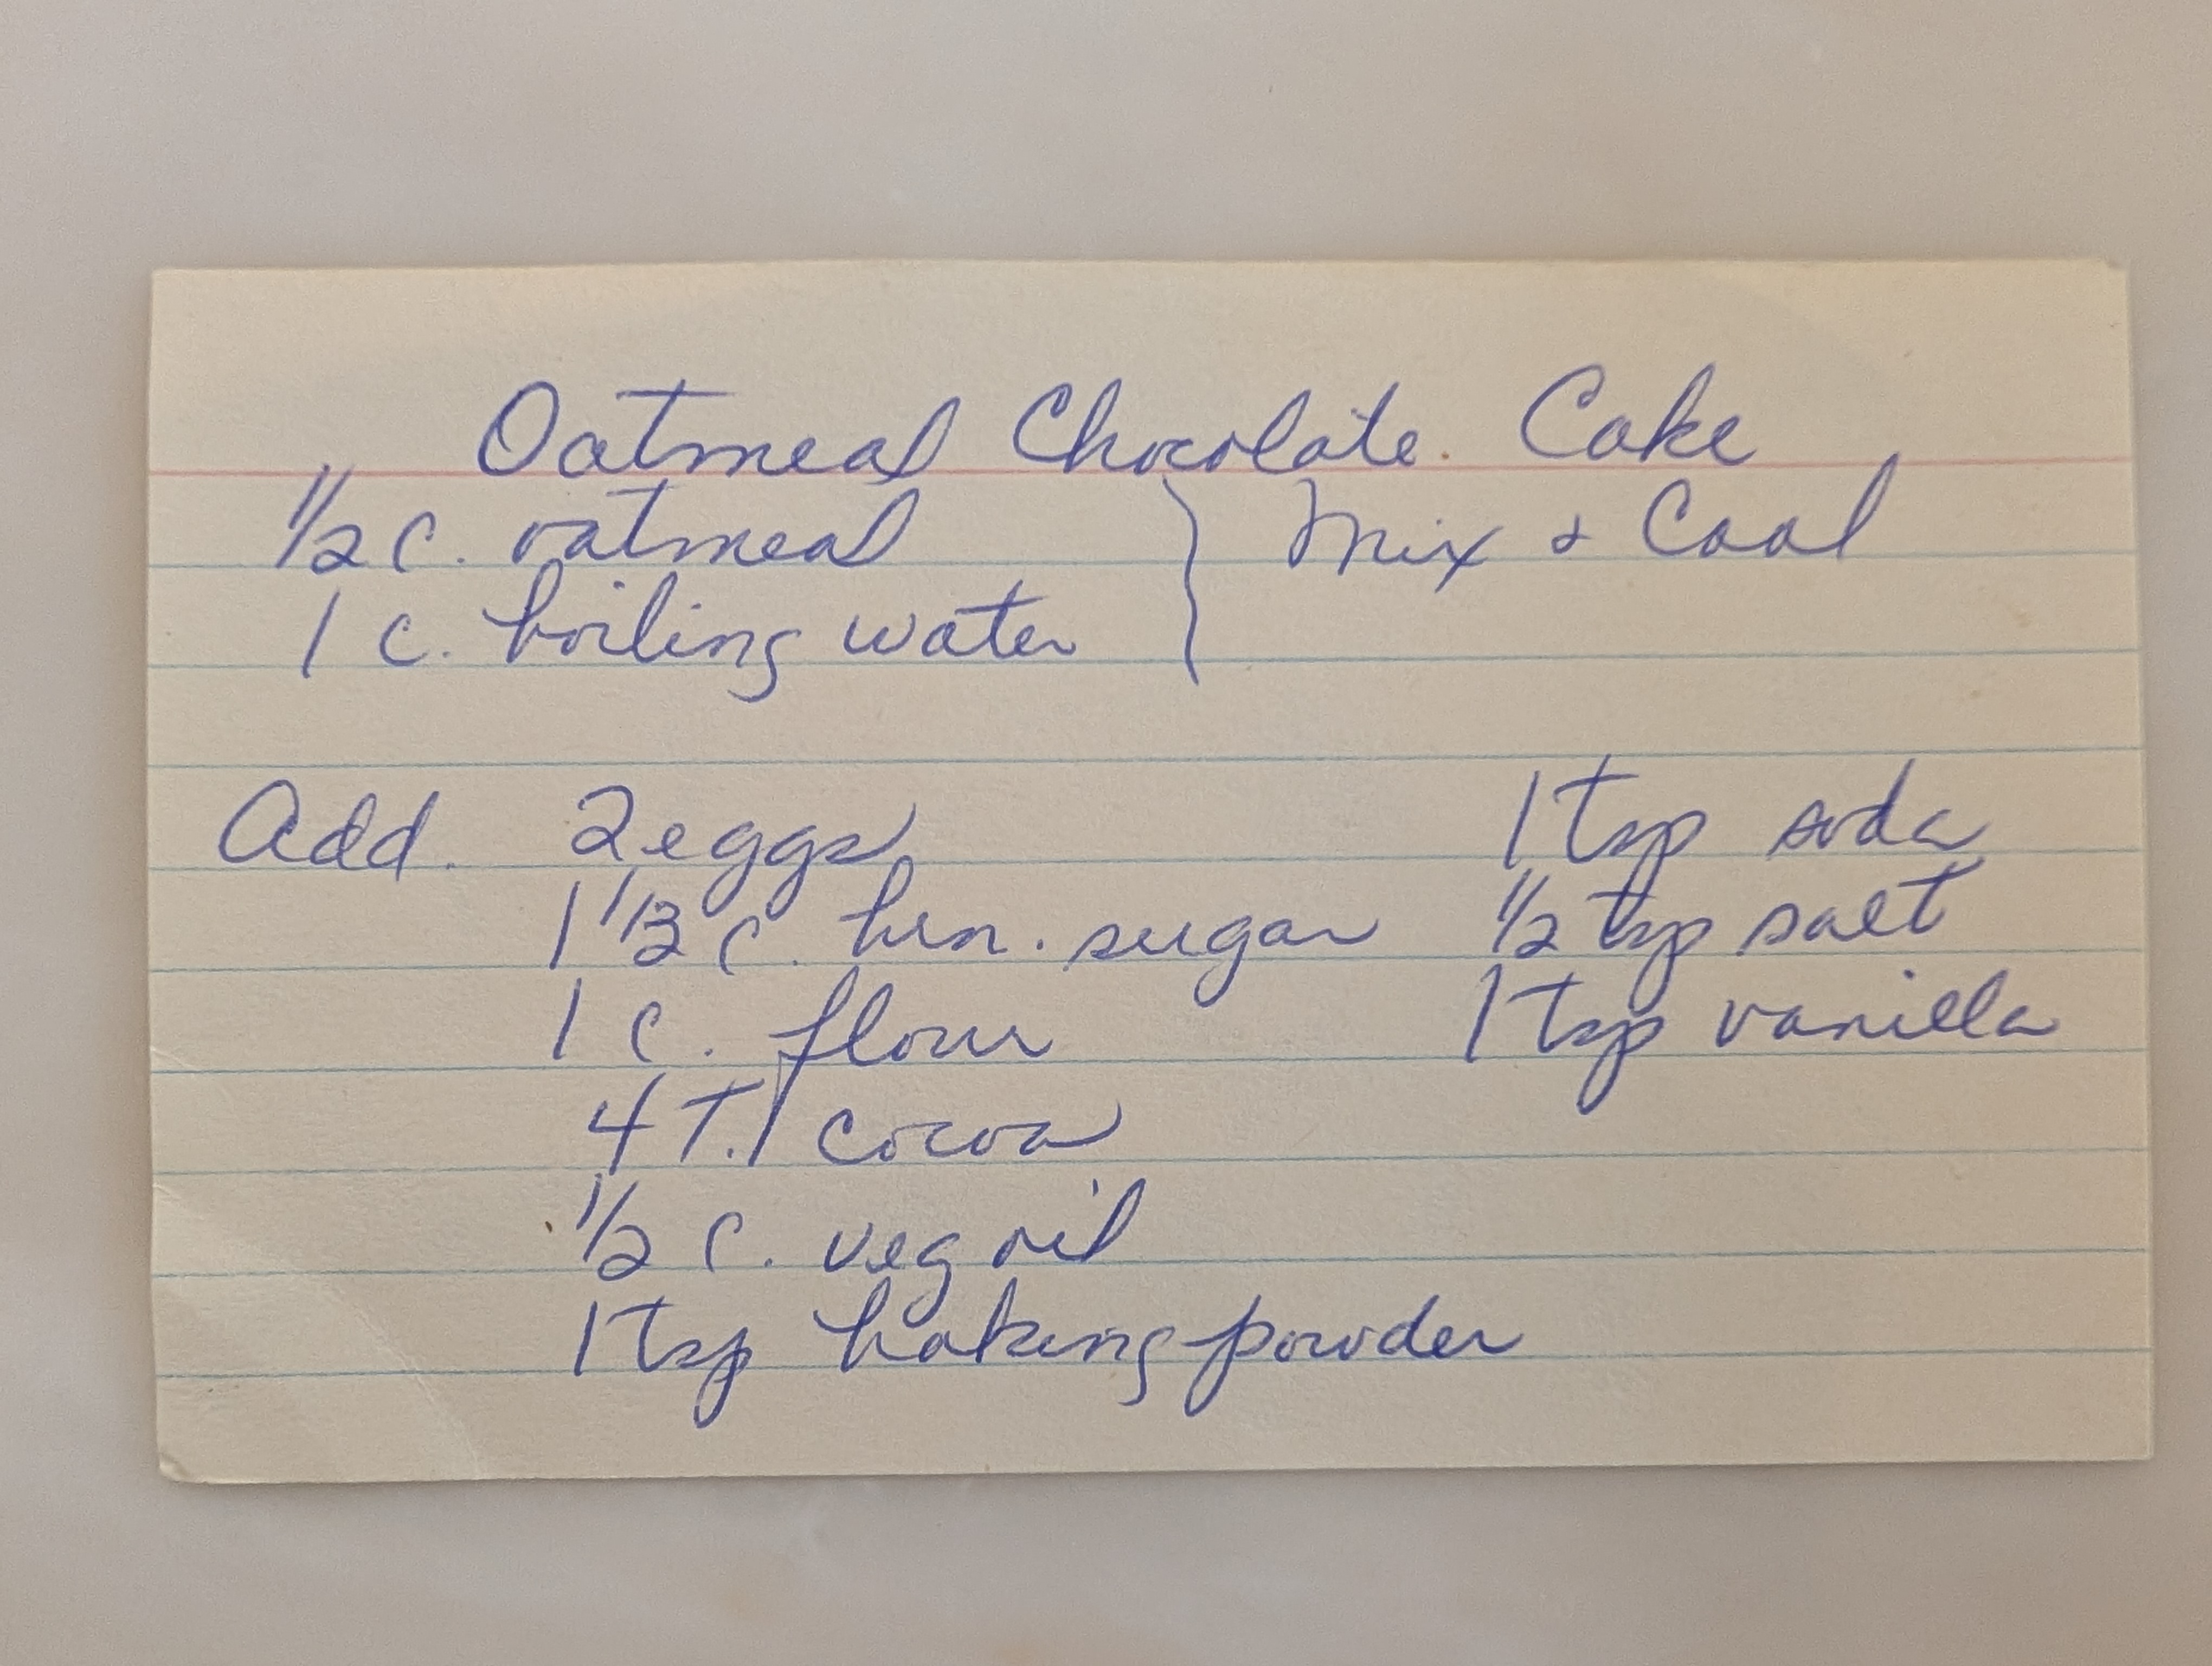 Oatmeal Chocolate Cake
1/2 c. oatmeal } Mix & Cool
1 c. boiling water
Add. 2 eggs
1 1/3 c. brn. sugar
1 c. flour
4 T. cocoa
1/2 c. veg oil
1 tsp baking powder
1 tsp soda
1/2 tsp salt
1 tsp vanilla